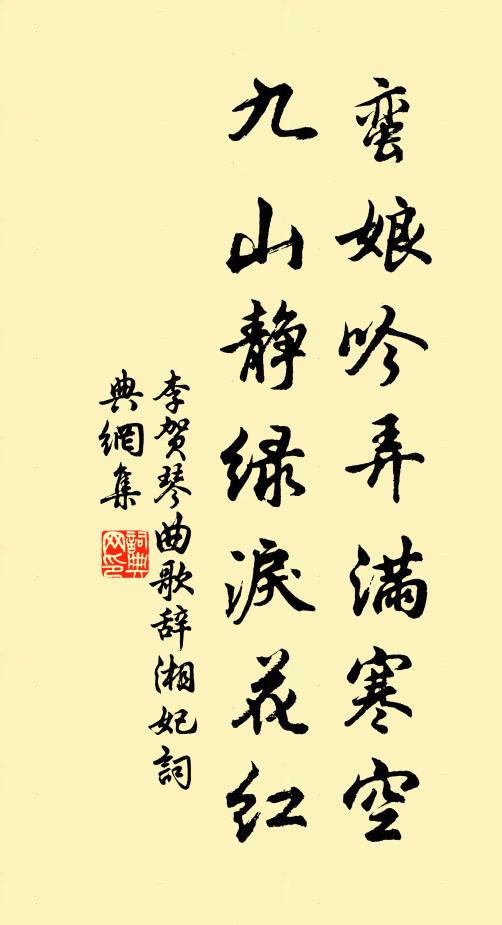 蛮娘吟弄满寒空
九山静绿淚花红
李贺琴曲歌辞湘妃詞
典網集
詞典网印